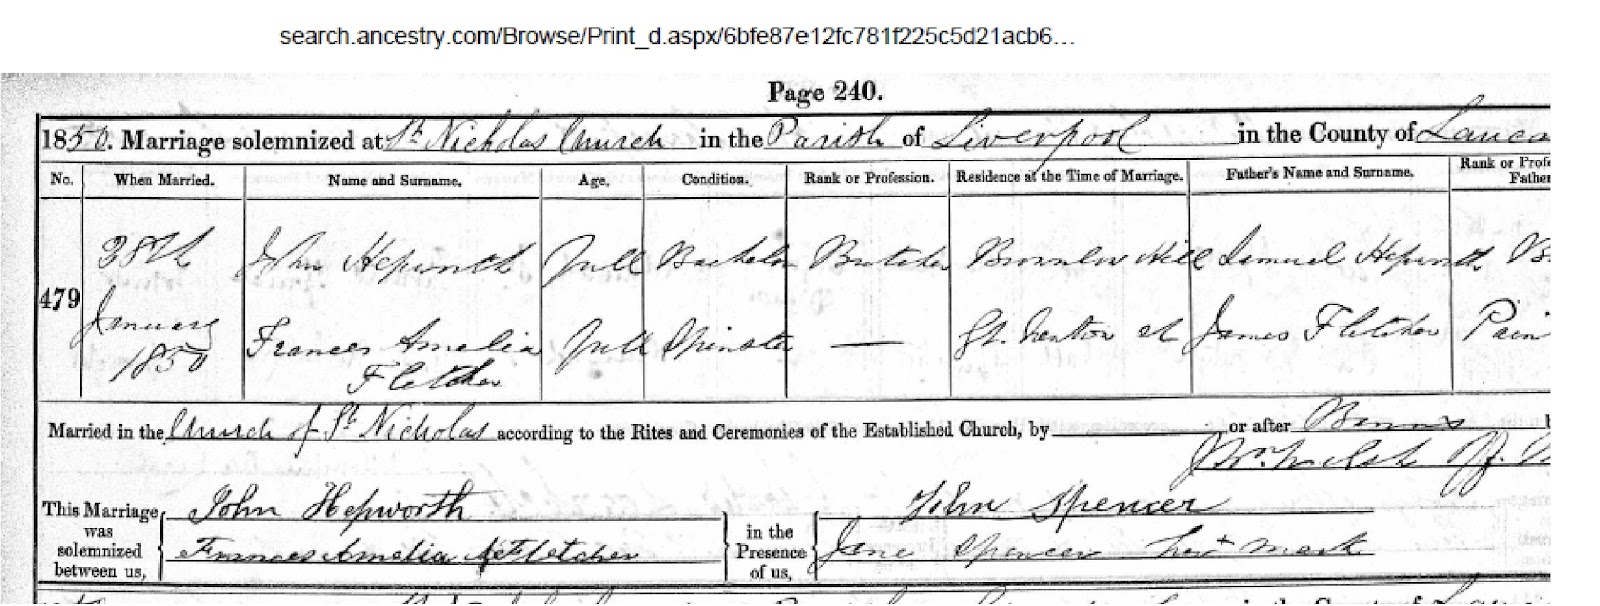 search.ancestry.com/Browse/Print_d.aspx/6bfe87e12fc781f225c5d21acb6...
Page 240.
1850. Marriage solemnized at St. Nicholas Church in the Parish of Liverpool in the County of Lanca
No. When Married. Name and Surname. Age. Condition. Rank or Profession. Residence at the Time of Marriage. Father's Name and Surname. Rank or Profe
Father
28th John Hepworth Full Bachelor Butcher Brownlow Hill Samuel Hepworth
479 January
1850 Frances Amelia Full Spinster — St. James Fletcher Pain
Fletcher
Married in the Church of St. Nicholas according to the Rites and Ceremonies of the Established Church, by or after Banns
This Marriage was solemnized between us, John Hepworth in the Presence of us, John Spencer
Frances Amelia Fletcher Jane Spencer her + mark
in the County of